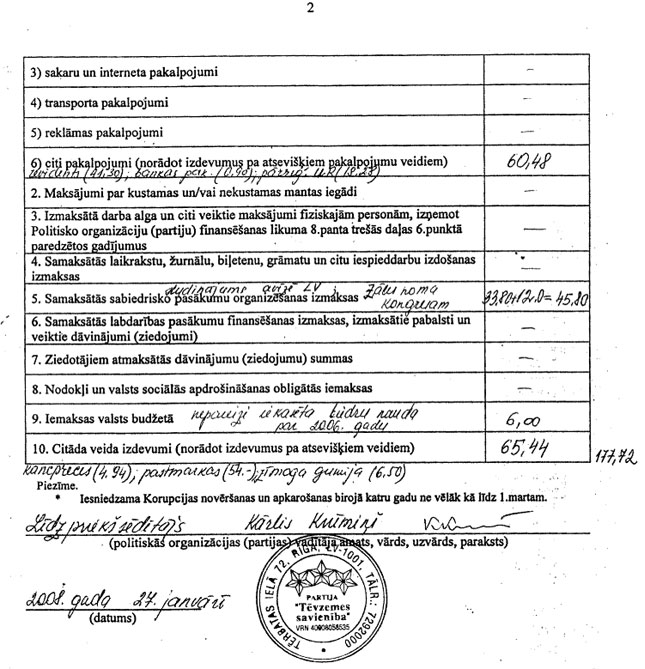 2
3) sakaru un interneta pakalpojumi –
4) transporta pakalpojumi –
5) reklāmas pakalpojumi –
6) citi pakalpojumi (norādot izdevumus pa atsevišķiem pakalpojumu veidiem) 60,48
(41,30); bankas pak. (0,90); UR (18.28)
2. Maksājumi par kustamas un/vai nekustamas mantas iegādi –
3. Izmaksātā darba alga un citi veiktie maksājumi fiziskajām personām, izņemot
Politisko organizāciju (partiju) finansēšanas likuma 8.panta trešās daļas 6.punktā –
paredzētos gadījumus
4. Samaksātās laikrakstu, žurnālu, biļetenu, grāmatu un citu iespieddarbu izdošanas –
izmaksas
sludinājums avīzē LV; Zāles noma
5. Samaksātās sabiedrisko pasākumu organizēšanas izmaksas kongresam 33.80+12.0=45,80
6. Samaksātās labdarības pasākumu finansēšanas izmaksas, izmaksātie pabalsti un –
veiktie dāvinājumi (ziedojumi)
7. Ziedotājiem atmaksātās dāvinājumu (ziedojumu) summas –
8. Nodokļi un valsts sociālās apdrošināšanas obligātās iemaksas –
9. Iemaksas valsts budžetā nepareizi iekasēta biedru nauda 6,00
par 2006. gadu
10. Citāda veida izdevumi (norādot izdevumus pa atsevišķiem veidiem) 65,44
177,72
kancpreces (4.94); pastmarkas (54.-); zīmoga gumija (6,50)
Piezīme.
• Iesniedzama Korupcijas novēršanas un apkarošanas birojā katru gadu ne vēlāk kā līdz 1.martam.
Līdzpriekšsēdētājs Kārlis Krūmiņš
(politiskās organizācijas (partijas) vadītāja amats, vārds, uzvārds, paraksts)
TĒRBATAS IELĀ 72, RĪGA, LV-1001, TĀLR.: 7292000
PARTIJA
"Tēvzemes
savienība"
VRN 40008058535
2008. gada 27. janvārī
(datums)